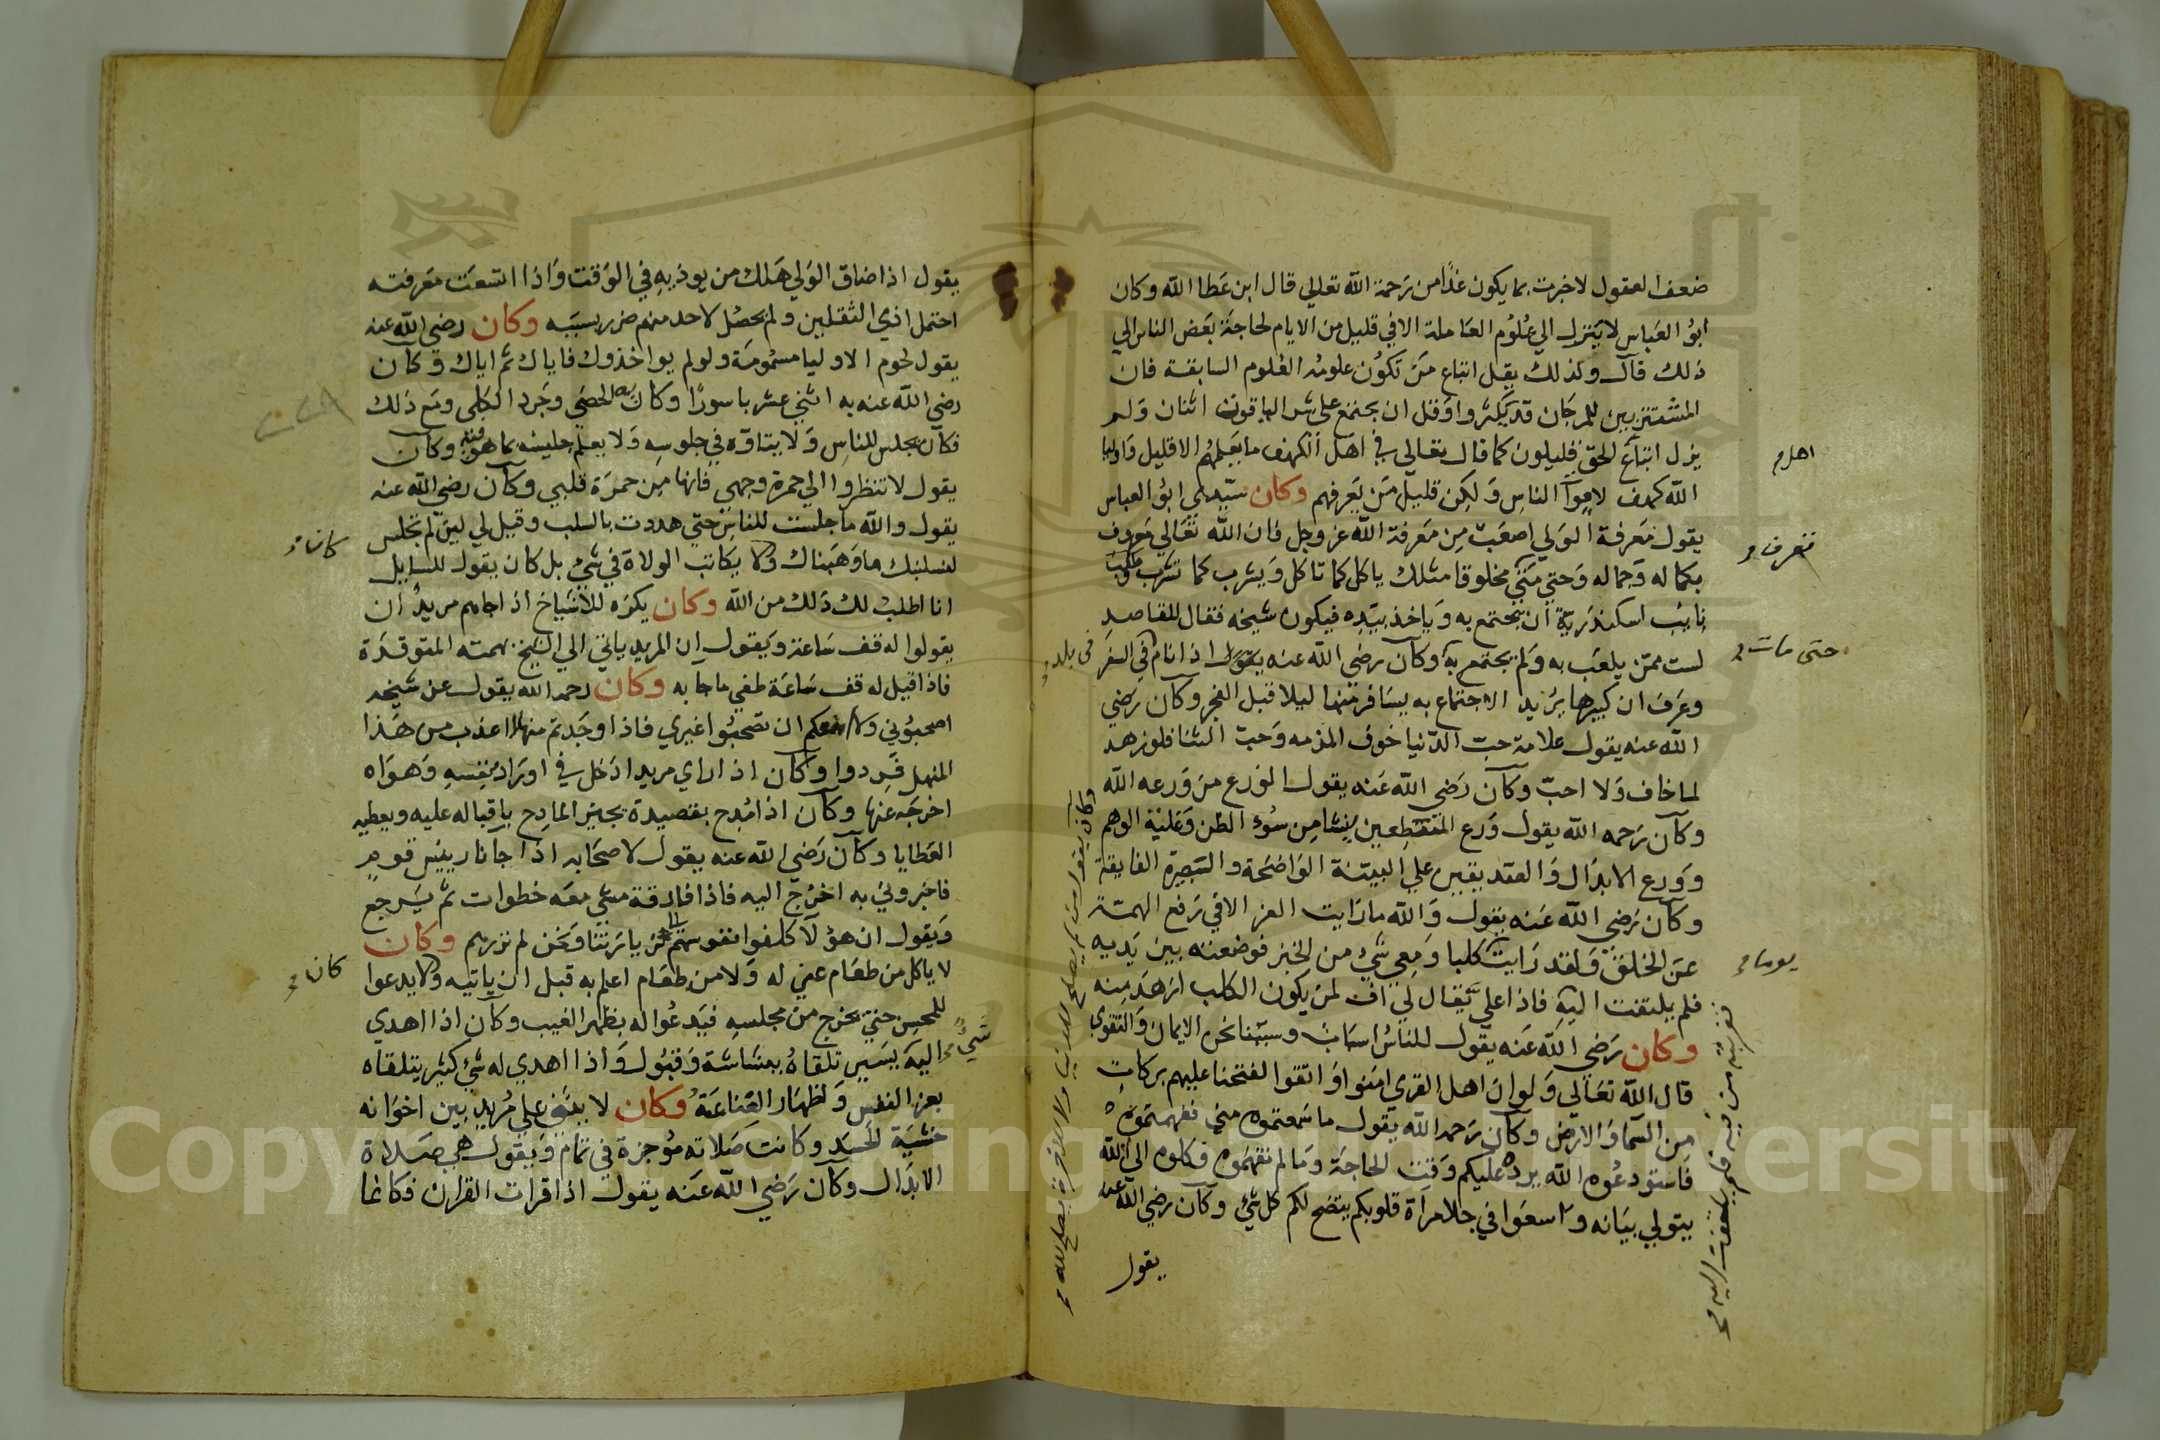 ضعف العقول لاخبرت بما يكون غدًا من رَحمة الله تعالي قال ابن عَطا الله وكان
ابوُ العَباس لا يَتنزل الي عُلوُم المعَاملة الا في قليل من الايام لحاجَة بَعَض الناس الي
ذلك قال وكذلك يقل اتباع مَن تكوُن علومُه العُلوم السابقة فان
المشتزيين للمرجَان قد يكثر واوقل ان يجتمع على شر الياقوت اثنان وَلم
يزل اتباع الحق قليلون كما قال تعَالي في اهَل الكهف ما يعَلمهُم الا قليل وَاوليا
الله كهف لامور الناس وَلكِن قليل مَن يَعرفهم وكان سَيّدي ابوُ العباس
يقول مَعرفة الوَلي اصعَبُ مِن مَعَرفة الله عز وجل فان الله تعَالي مَعروف
بكماله وَجماله وَحتي متى مخلوقا مثلك ياكل كما تاكل وَيشرب كما تشَرب وطلب
نايب اسكندَريّة ان يجتمع به وَياخذ بيَدِه فيكون شيخه فقال للقاصد
لست ممن يلعَب به وَلم يجتمع به وكان رضي الله عنه يقول اذا نام في السفر
وعَرَف ان كبيرها يرُيد الاجتماع به يسَافر منها ليلا قبل الفجر وكان رَضي
الله عنه يقول علامة حبّ الدّنيا خوَف المذمه وَحبّ الثنا فلو زهد
لما خاف وَلا احبّ وكان رَضي الله عَنه يقول الوَرع مَن وَرعه الله
وكان رَحمه الله يقول وَرع المتقطِعين ينشا مِن سوُء الظن وَغلبَة الوهم
ووَرع الابدَال وَ العقد يقين علي البيّنة الوَاضحَة والبَصِيرة الفايقة
وكان رَضي الله عَنه يقول وَالله ما رَايت العز الا في رَفع الهمّة
عَن الخلق وَلقد رَايت كلبا وَمعِي شيء من الخبز فوضعته بين يَديه
فلم يلتفت اليه فاذا علي يقال لي اف لمن يكون الكلب ازهَد مِنه
وكان رَضي الله عَنه يقول للناس اسبَابٌ وسببنا نحن الايمان وَالتقوي
قال الله تعَالي وَلو ان اهل القرى امنوا وَاتقوا لفتحنا عليهم بركات
مِن السماَ والارض وكان رَحمه الله يقول ما سمَعتموه مني ففهمتموُه
فَاستودعُوه الله يردهُ عليكم وَقت الحاجَة وَما لم تفهمَوه فكلوه الي الله
يتولي بيَانه واسعَوا في جلا مرآة قلوبكم يتضح لكم كل شيٌ وكان رضي الله عنه
يقول
اهل م
تعرف م
حتى مات م
يوما م
في بلد م
وكان يقول من لم يصلح للدنيا ولا للاخرة يصلح لله م
فقربته من فيه فلم يلتفت اليه م
يقول اذا ضاق الوَلي هَلك من يوذيهِ في الوَقت وَاذا اتسعَت مَعَرفته
احتمل اذي الثقلين ولم يحصُل لاحد منهم ضرر بسببه وكان رضي الله عنه
يقول لحوم الاوليا مسمُومَة ولو لم يواخذوك فاياك ثم اياك وكان
رضي الله عنه به اثني عشر باسورًا وكان به الحصَي وَبَرد الكلى ومَع ذلك
فكان يجلس للناس وَلا يتاوّه في جلوسِه وَلا يعلم جليسُه بما هو فيه وكان
يقول لا تنظروا الي حمرة وجهي فانها مِن حمرَة قلبي وكان رضي الله عنه
يقول والله ما جلست للناس حتي هددت بالسلب وقيل لي ليئن لم تجلس
لنسلبنك ما وَهَبناك ولا يكاتب الولاة في شيء بل كان يقول للسايل
انا اطلبُ لك ذلك من الله وكان يكرَه للاشياخ اذا جاهم مريدٌ ان
يقولوا له قف سَاعة ويَقول ان المريد ياتي الي الشيخ بهمته المتوقدَة
فاذا قيل له قف سَاعَة طفي ما جا به وكان رحمه الله يقول عن شيخه
اصحبوُني ولا امنعكم ان تصحَبُوا غيري فاذا وجَدتم منهلا اعذب من هَذا
المنهل فَردوا وكان اذا راي مريدا دَخل في اورَاد بنفسهِ وَهوَاه
اخرجَه عنها وكان اذا مُدح بقصيدة يجيز المادح باقباله عليه ويعطيه
العَطايا وكان رَضي الله عنه يقول لاصحَابه اذا جانا رييسُ قومٍ
فاخبروني به اخرج اليه فاذا فارقة مشي معَه خطوات ثم يَرجع
وَيقول ان هؤلآ كلفوا نفوسهم الي زيارَتنا وَنحَن لم نزرهم وكان
لا ياكل مِن طعَام عمي له وَلا من طعَام اعلم به قبل ان ياتيه ولا يدعوا
للمحسن حتي يخرج من مجلسِه فيَدعُوا له بظهر الغيب وكان اذا اهدي
اليه يسَير تلقاهُ ببشاشة وَقبُول وَاذا اهدي له شيٌ كثير يتلقاه
بعز النفس وَاظهار القَناعَةُ وكان لا يثني علي مُريد بين اخوَانه
خشيَة الحسَد وكانت صَلاته مُوجزة في تمام وَيقول هي صَلاة
الابدَال وكان رَضي الله عَنه يقول اذا قرات القران فكاغا
كان م
كان م
شيٌ م
Copy King University